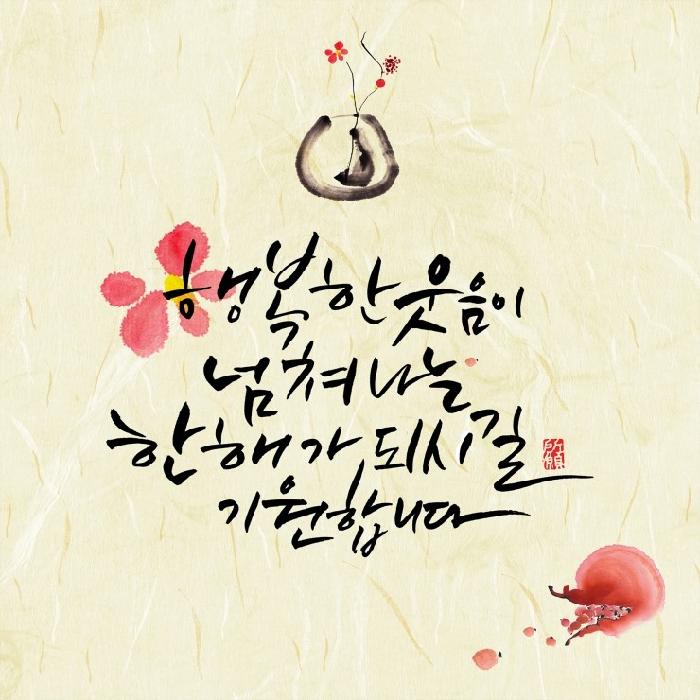 행복한 웃음이
넘쳐나는
한해가 되시길
기원합니다
所願